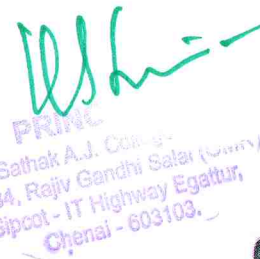 PRINC
Sathak A.J.
34, Rajiv Gandhi Salai (OMR)
Sipcot - IT Highway Egattur,
Chenai - 603103.